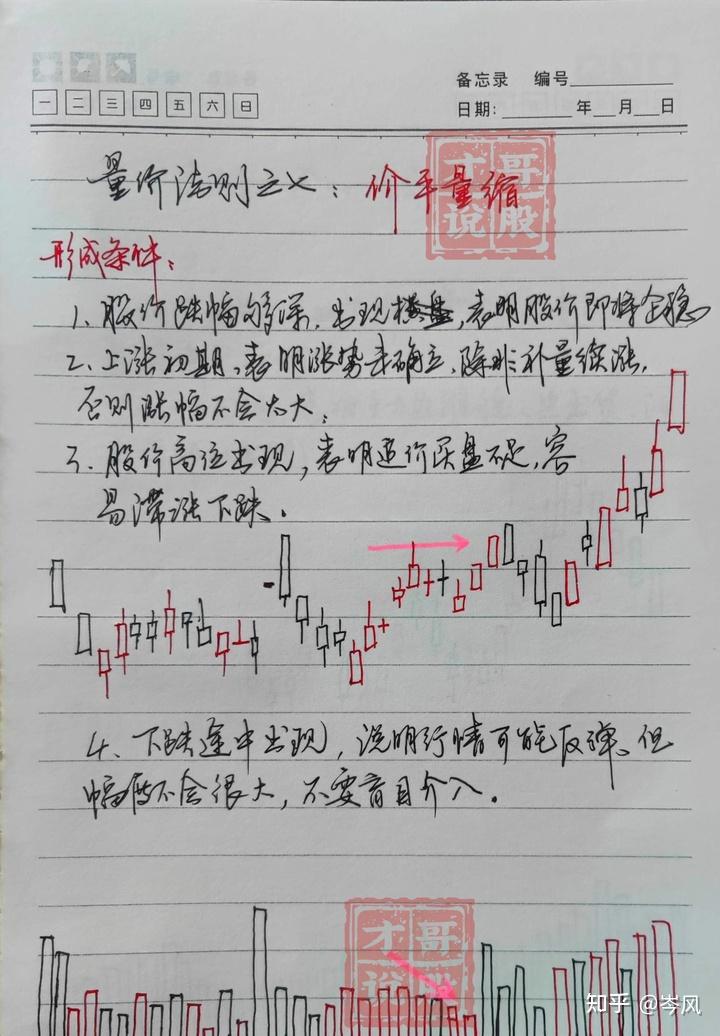 备忘录 编号
一 二 三 四 五 六 日
日期: 年 月 日
量价法则之七：价平量缩
才哥
说股
形成条件：
1、股价跌幅够深，出现横盘，表明股价即将企稳
2、上涨初期，表明涨势未确立，除非补量续涨，
否则涨幅不会太大；
3、股价高位出现，表明追价买盘不足，容
易滞涨下跌。
4、下跌途中出现，说明行情可能反弹。但
幅度不会很大，不要盲目介入。
才哥
说股
知乎 @岑风